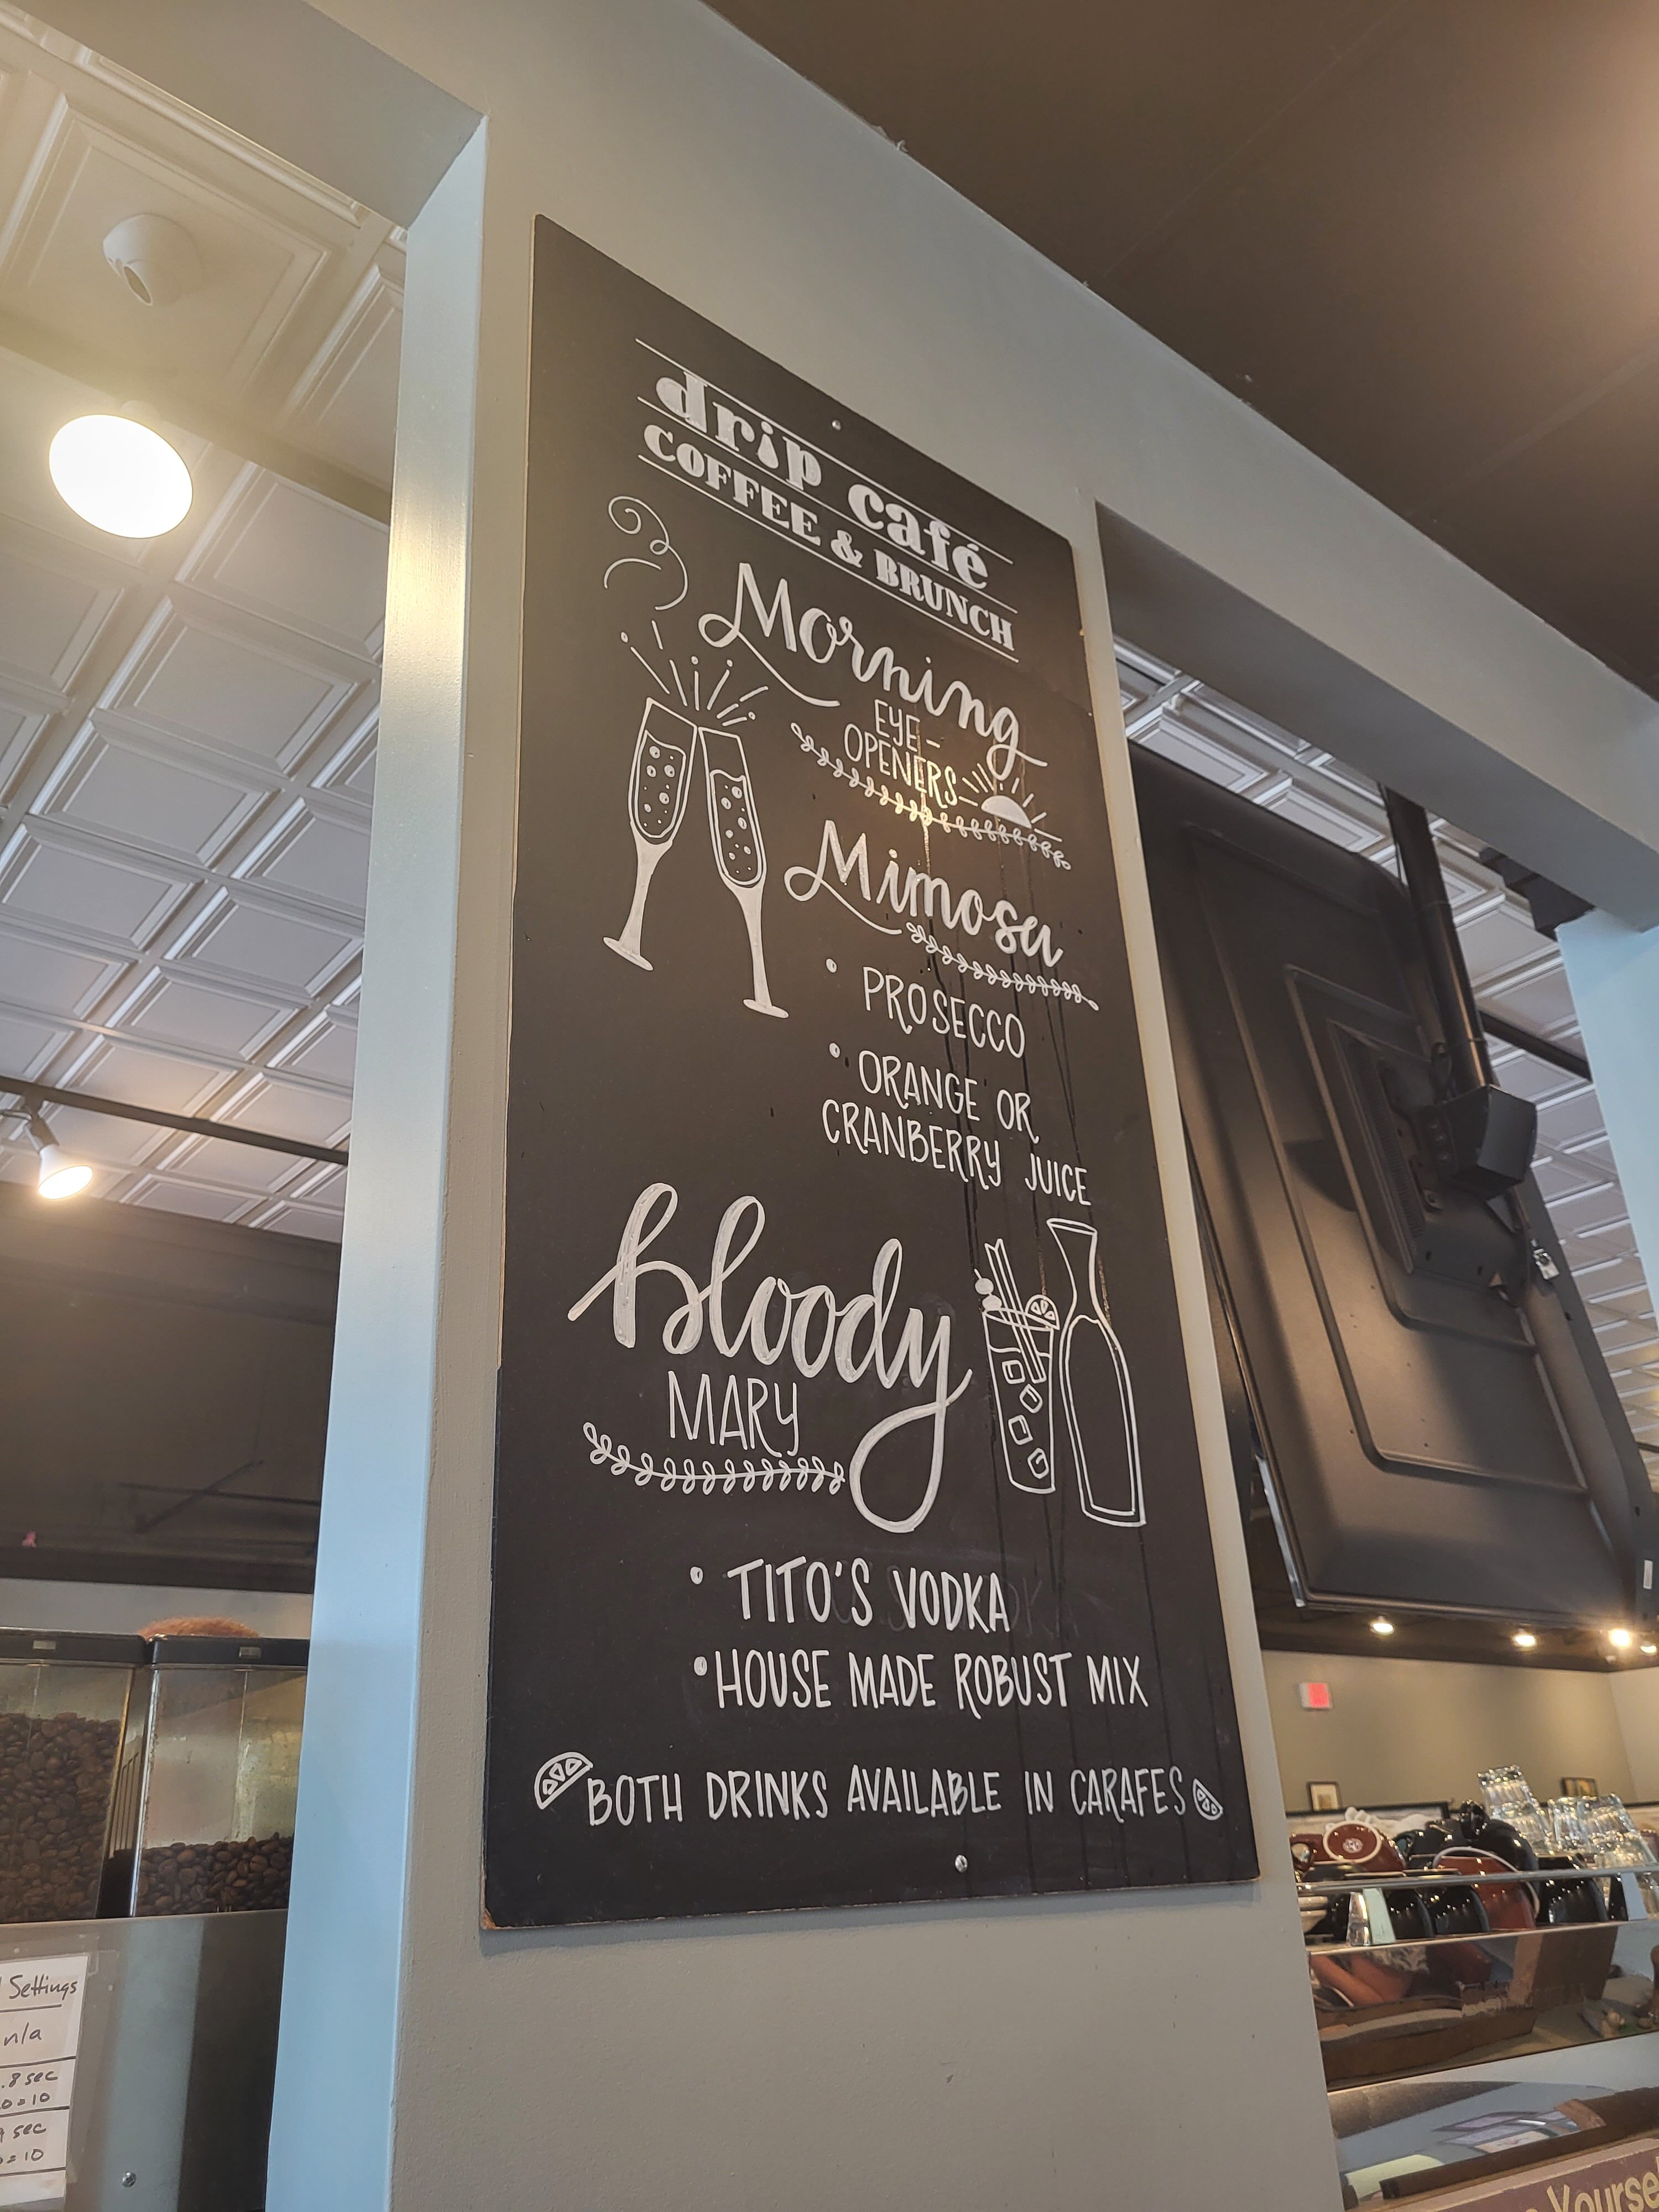 drip café
COFFEE & BRUNCH
Morning
EYE-
OPENERS
Mimosa
• PROSECCO
• ORANGE OR
CRANBERRY JUICE
bloody
MARY
• TITO'S VODKA
• HOUSE MADE ROBUST MIX
BOTH DRINKS AVAILABLE IN CARAFES
Settings
n/a
.8 sec
=10
sec
=10